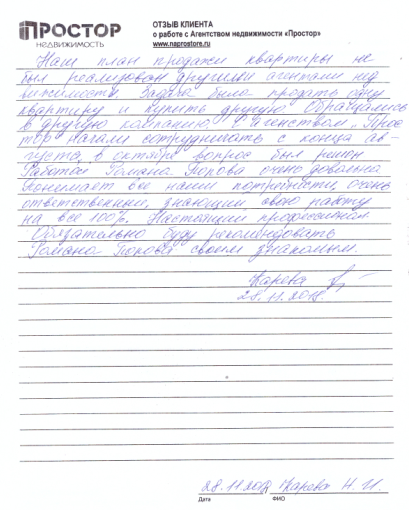 ПРОСТОР
НЕДВИЖИМОСТЬ
ОТЗЫВ КЛИЕНТА
о работе с Агентством недвижимости «Простор»
www.naprostore.ru
Наш план продажи квартиры не
был реализован другими агентами нед
вижимости. Задача была продать одну
квартиру и купить другую. Обращались
в другую компанию. С Агенством „Прос
тор" начали сотрудничать с конца ав-
густа, в октябре вопрос был решен
Работой Романа Попова очень довольна
Понимает все наши потребности, очень
ответственный, знающий свою работу
на все 100%. Настоящий профессионал.
Обязательно буду рекомендовать
Романа Попова своим знакомым.
Карева
28.11.2018
28.11.2018 Карева Н. И.
Дата ФИО